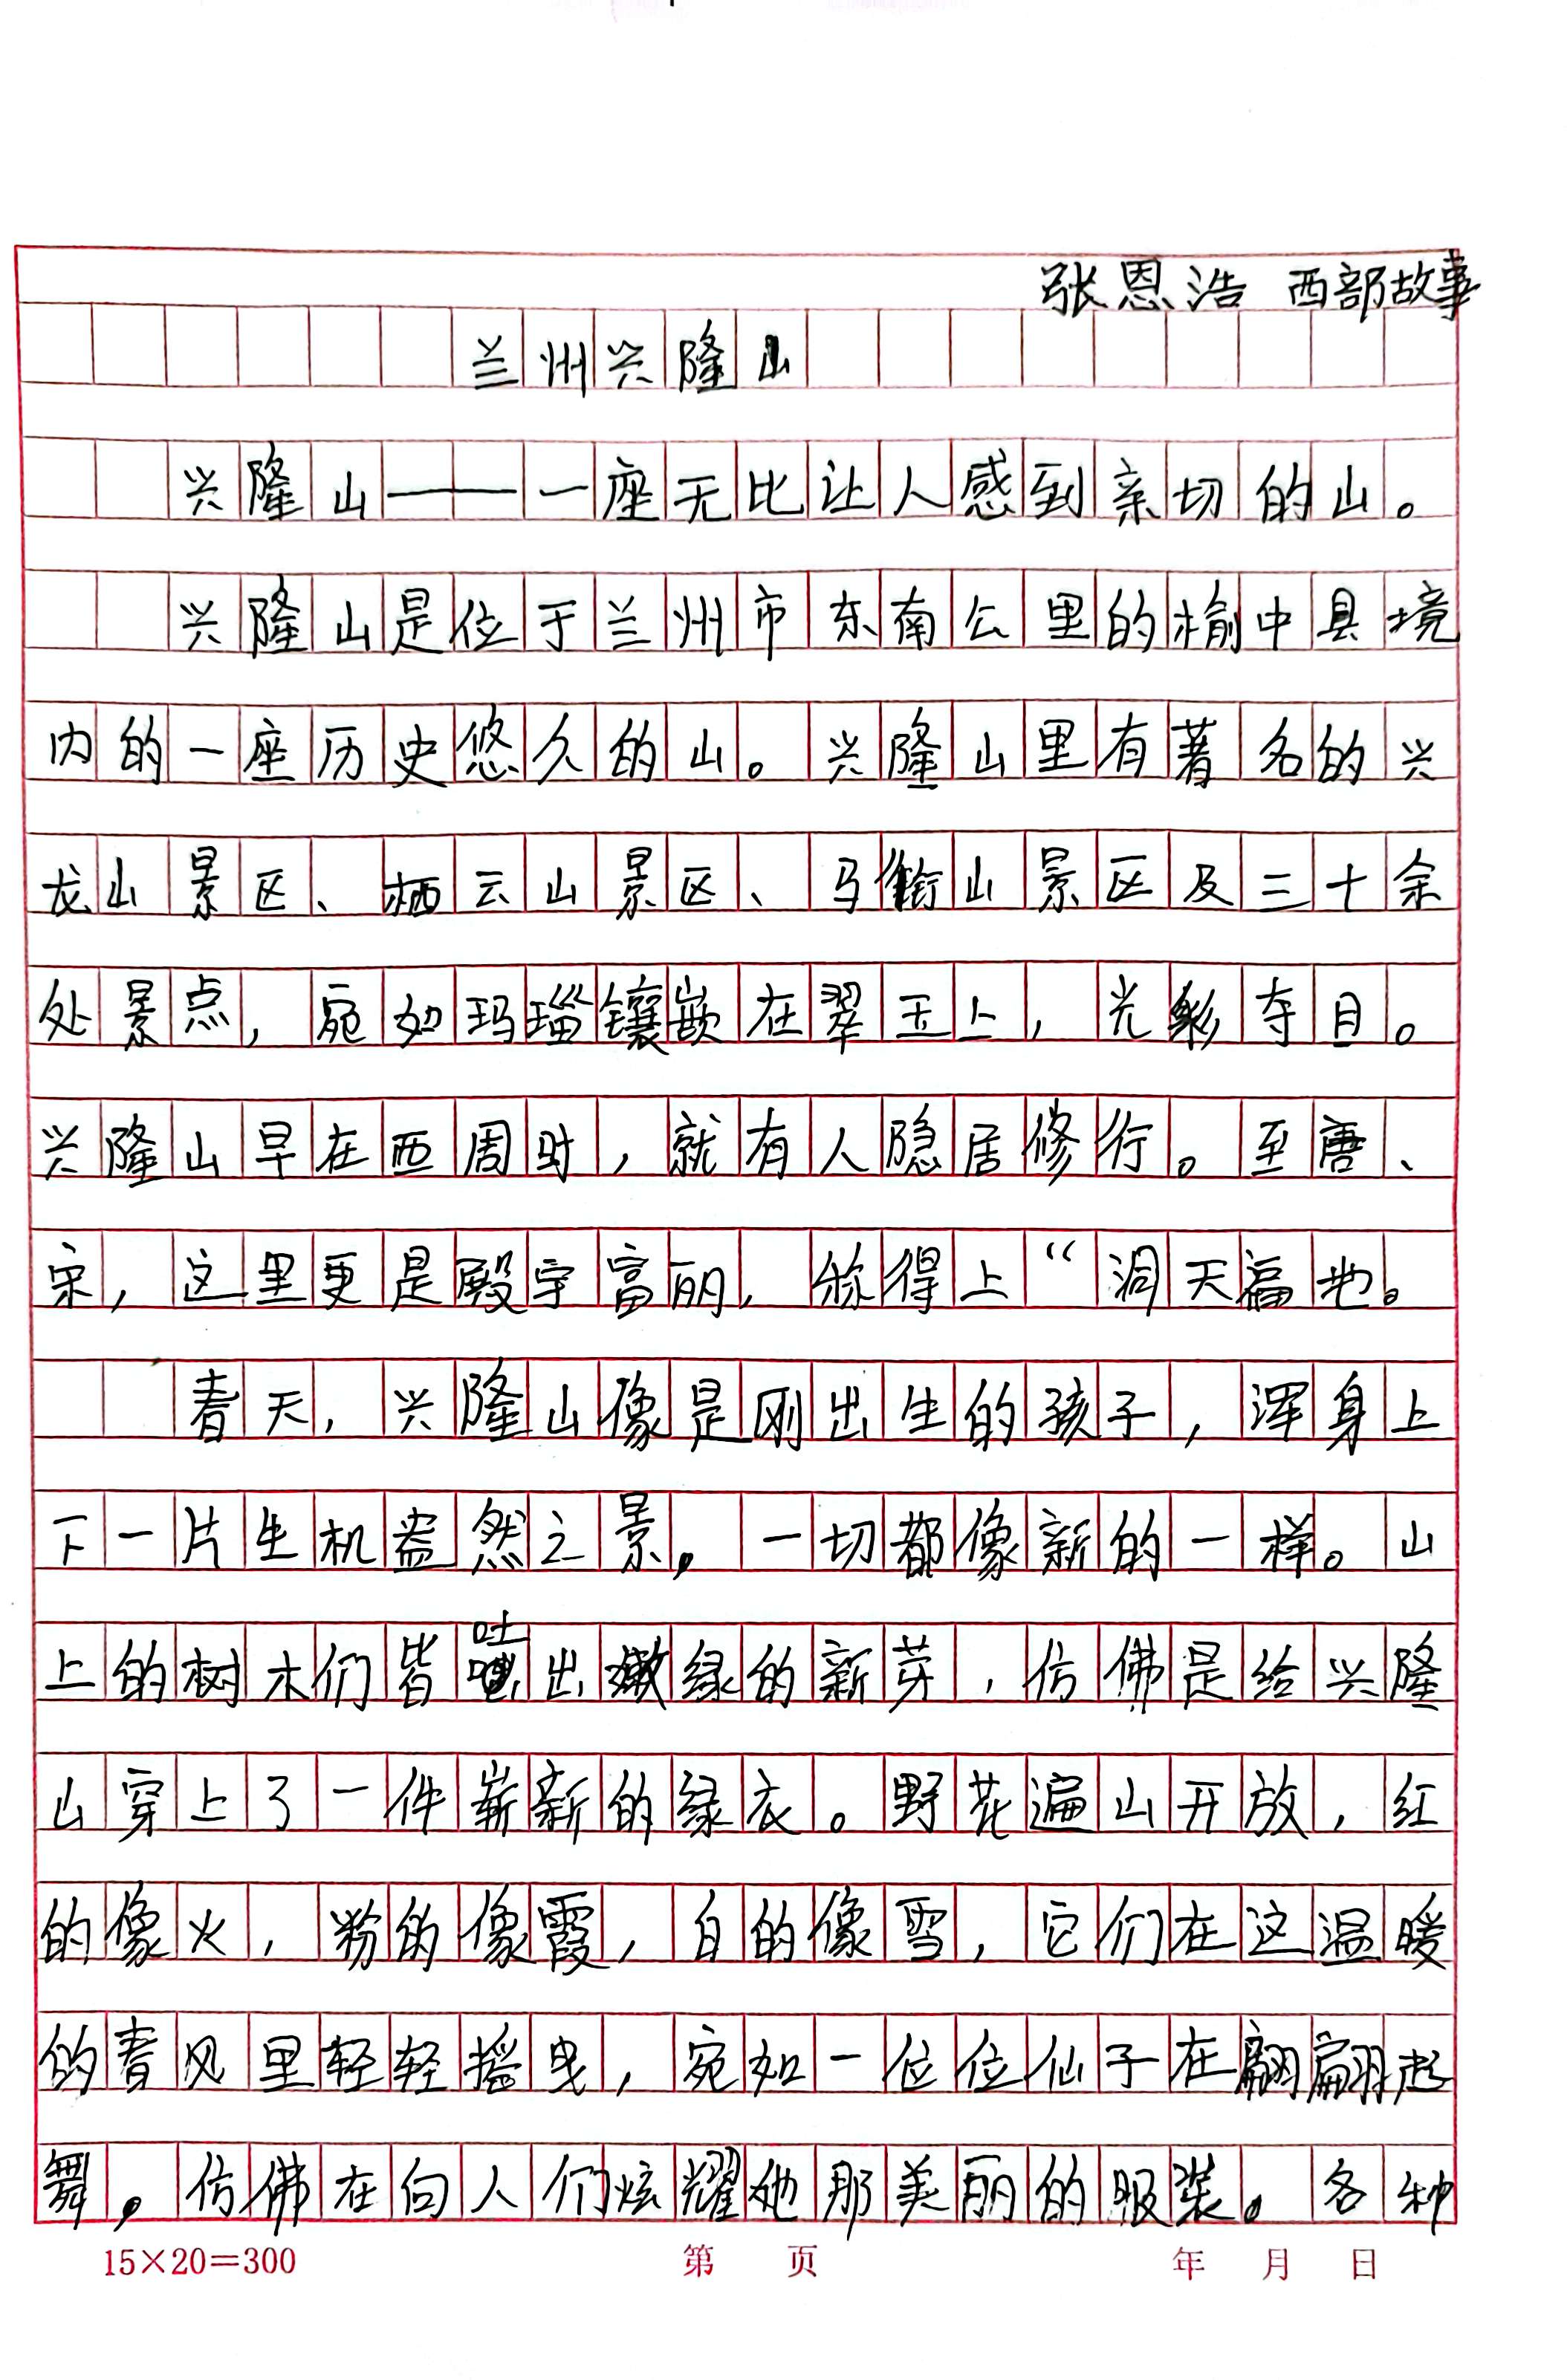 张恩浩 西部故事
兰州兴隆山
兴隆山——一座无比让人感到亲切的山。
兴隆山是位于兰州市东南公里的榆中县境
内的一座历史悠久的山。兴隆山里有著名的兴
龙山景区、栖云山景区、马衔山景区及三十余
处景点，宛如玛瑙镶嵌在翠玉上，光彩夺目。
兴隆山早在西周时，就有人隐居修行。至唐、
宋，这里更是殿宇富丽，称得上“洞天福地。
春天，兴隆山像是刚出生的孩子，浑身上
下一片生机盎然之景，一切都像新的一样。山
上的树木们皆吐出嫩绿的新芽，仿佛是给兴隆
山穿上了一件崭新的绿衣。野花遍山开放，红
的像火，粉的像霞，白的像雪，它们在这温暖
的春风里轻轻摇曳，宛如一位位仙子在翩翩起
舞，仿佛在向人们炫耀她那美丽的服装。各种
15×20=300 第 页 年 月 日